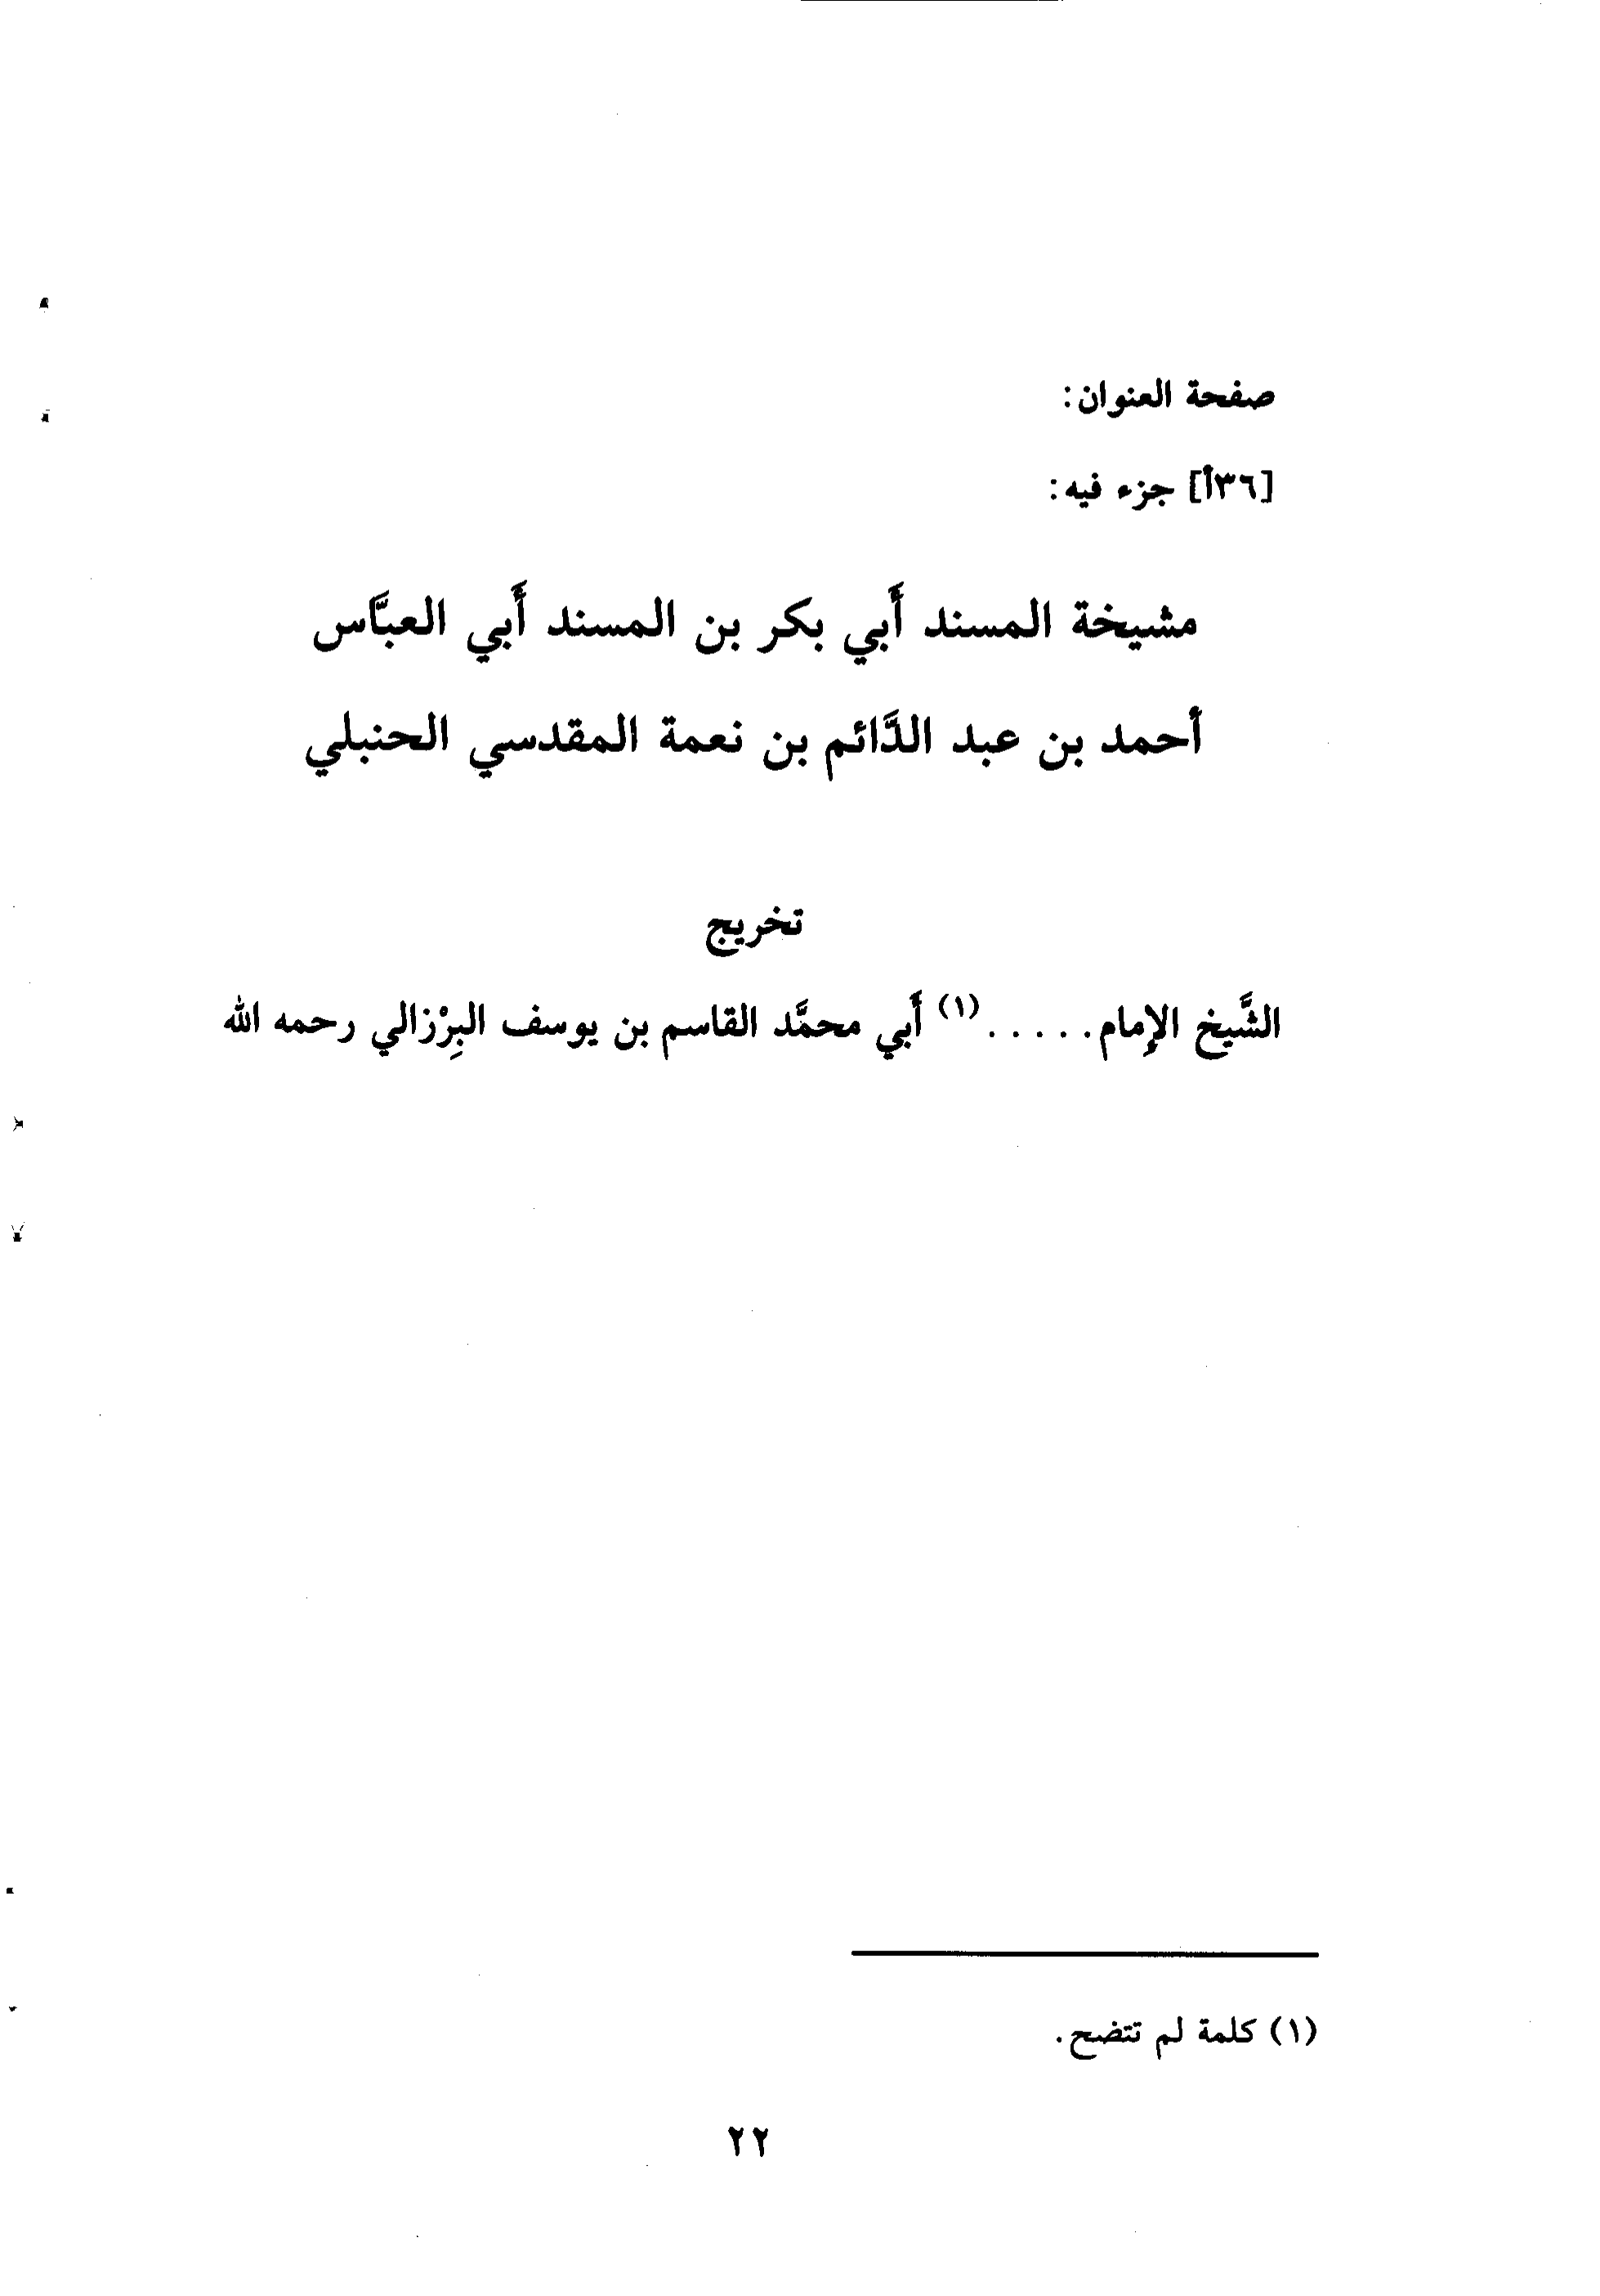 صفحة العنوان:
[٣٦أ] جزء فيه:
مشيخة المسند أَبي بكر بن المسند أَبي العبَّاس
أحمد بن عبد الدَّائم بن نعمة المقدسي الحنبلي
تخريج
الشَّيخ الإمام.....(١) أَبي محمَّد القاسم بن يوسف البِرْزالي رحمه الله
(١) كلمة لم تتضح.
٢٢